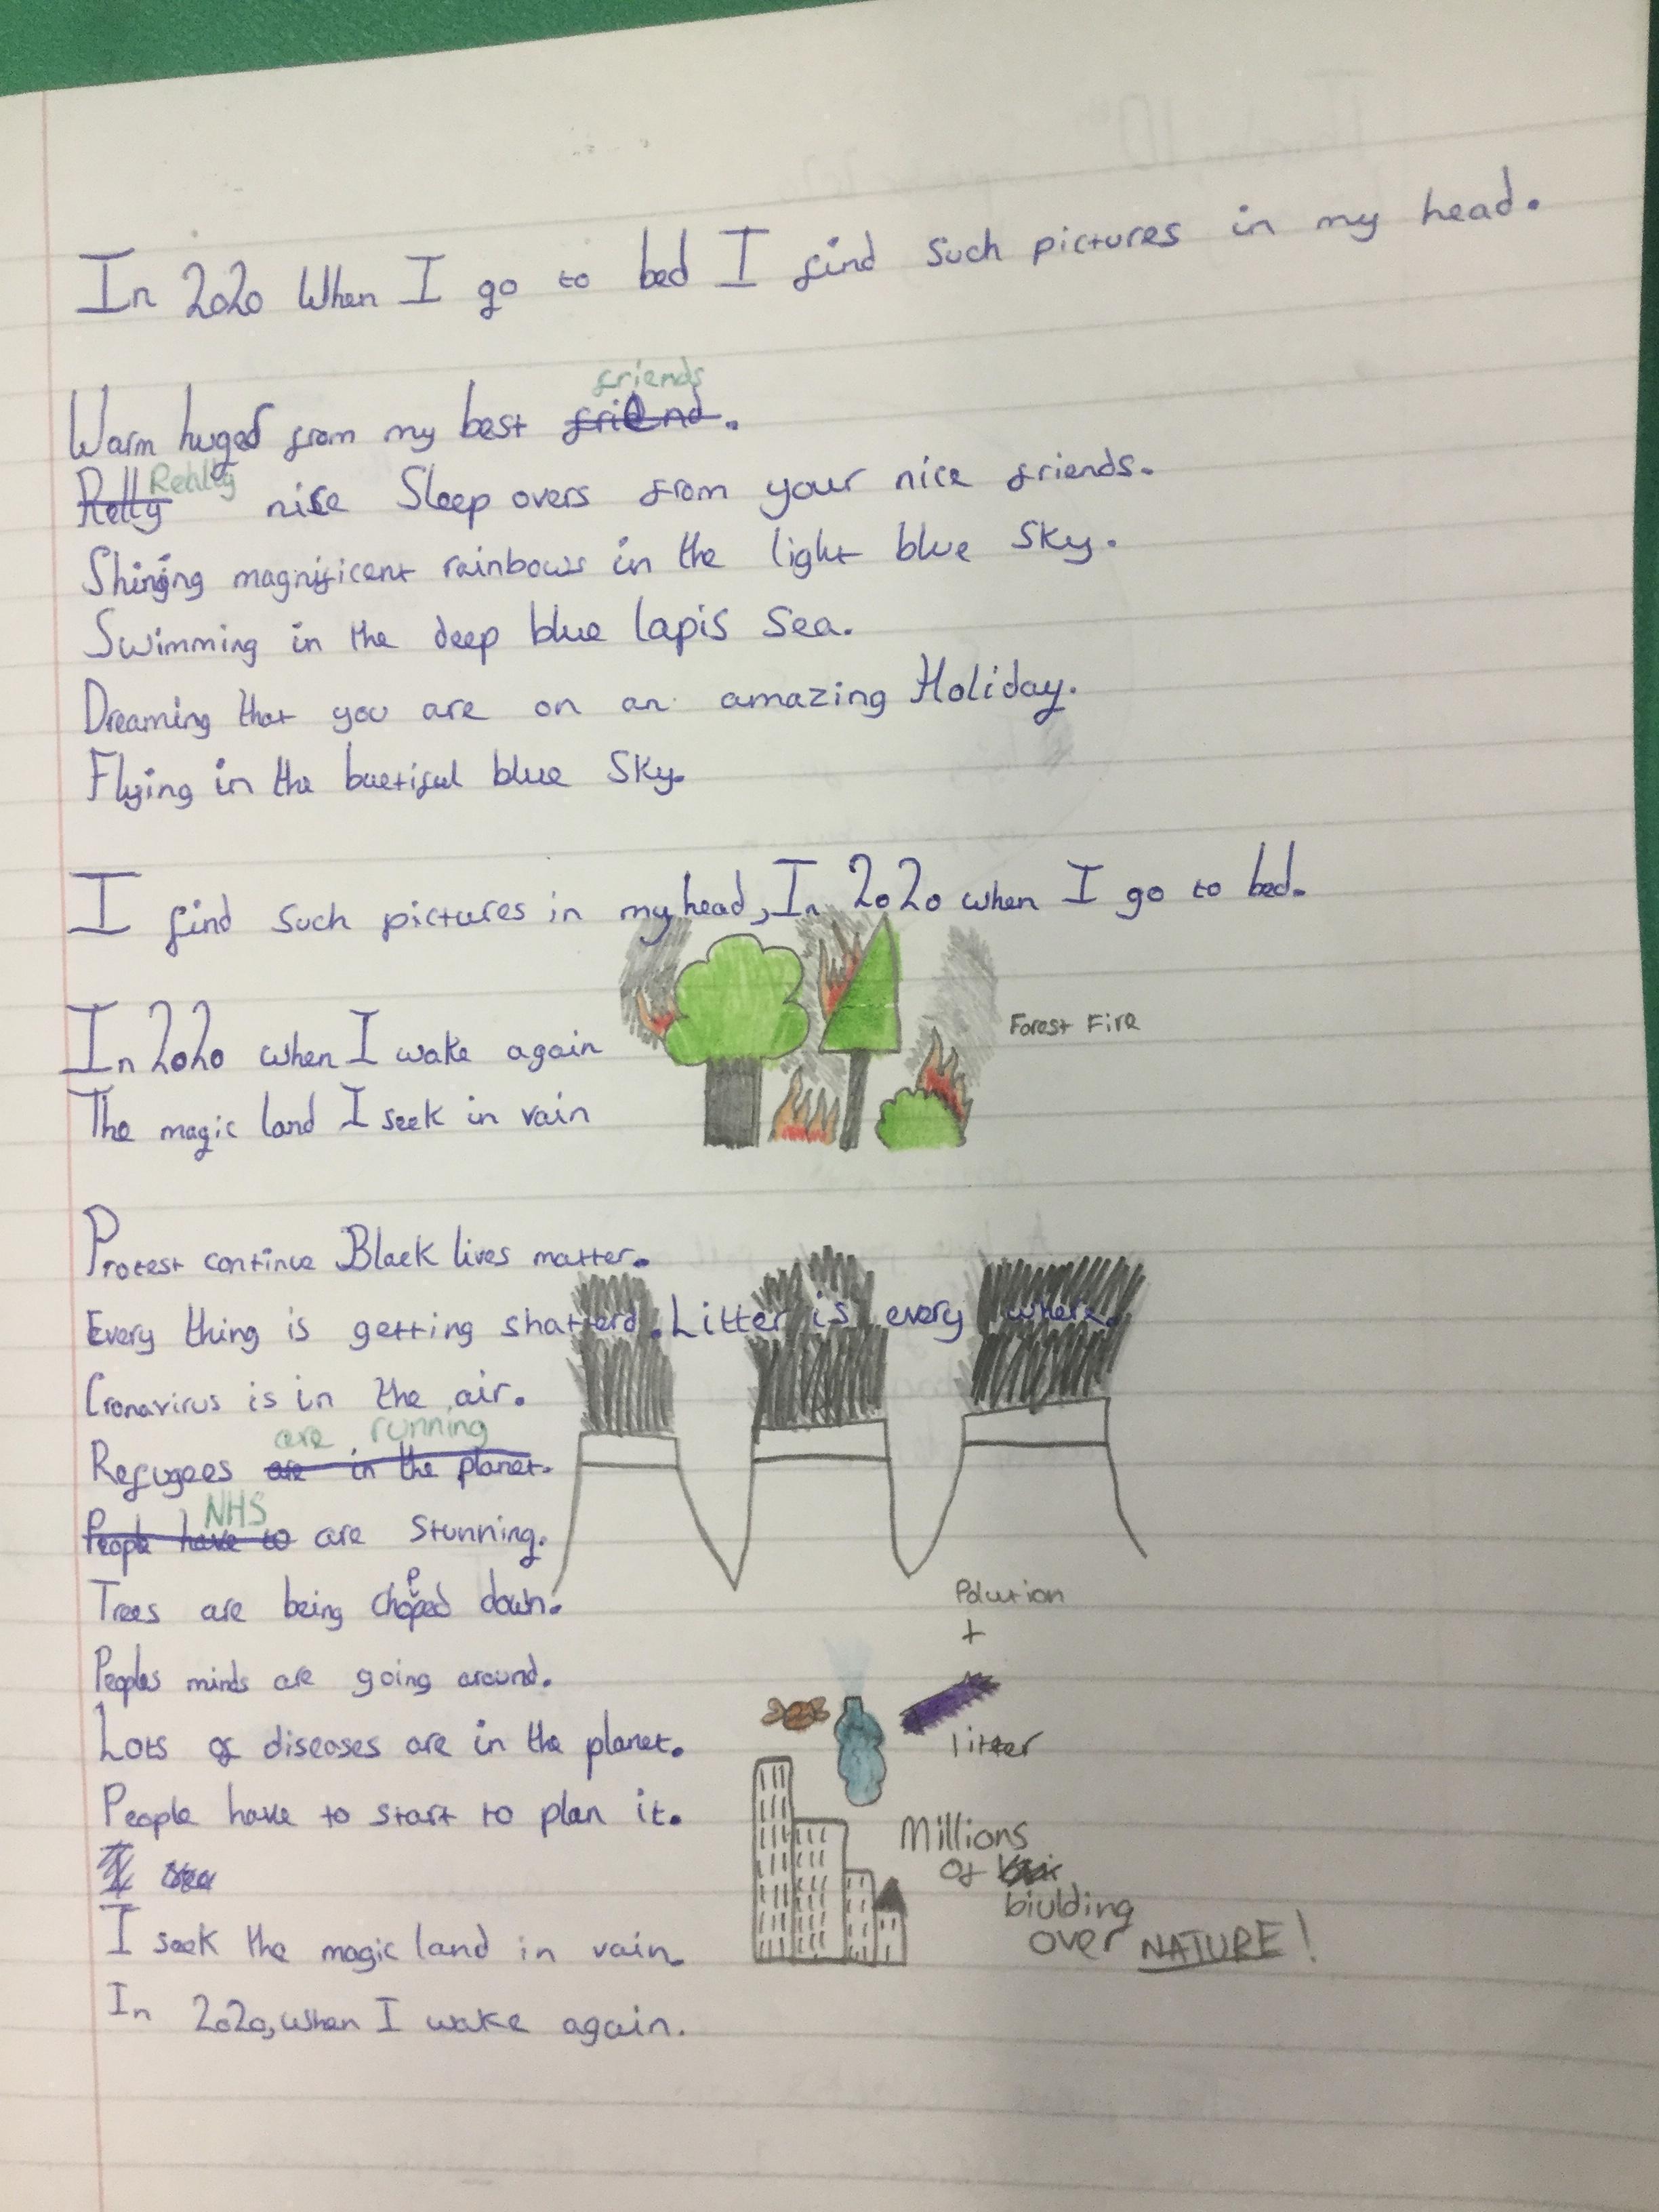 In 2020 When I go to bed I find such pictures in my head.
friends
Warm huged from my best friend.
Really
Relly nise Sleep overs from your nice friends.
Shining magnificent rainbows in the light blue Sky.
Swimming in the deep blue lapis sea.
Dreaming that you are on an amazing Holiday.
Flying in the buetiful blue Sky.
I find such pictures in my head, In 2020 when I go to bed.
In 2020 when I wake again
The magic land I seek in vain
Forest Fire
Protest continue Black lives matter.
Every thing is getting shatterd. Litter is every where.
Cronavirus is in the air.
are running
Refugees are in the planet.
NHS
People have to are Stunning.
Trees are being chopped down.
Peoples minds are going around.
Lots of diseases are in the planet.
People have to start to plan it.
I
I seek the magic land in vain.
In 2020, when I wake again.
Polution
+
litter
Millions
of
biulding
over NATURE!